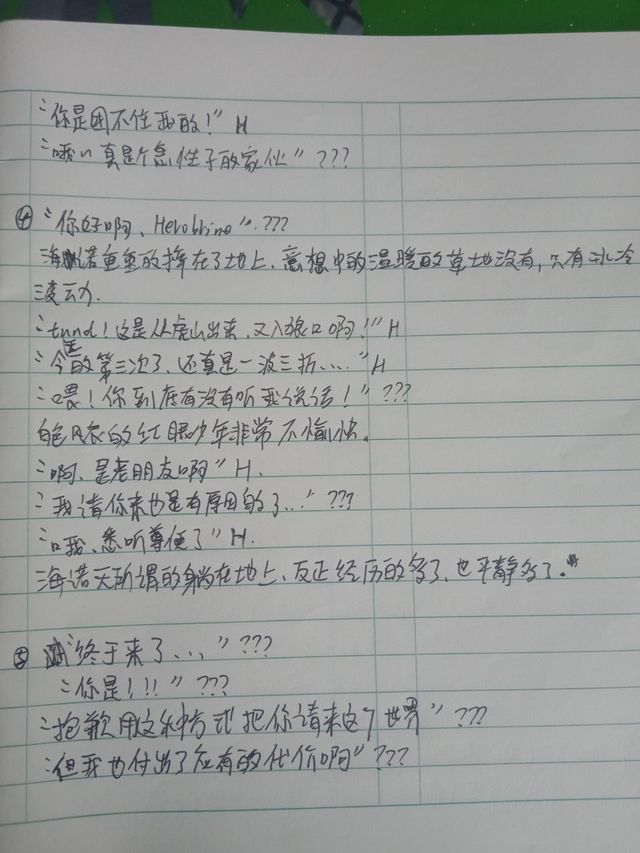 “你是困不住我的！” H
“哦、、真是个急性子的家伙” ???
④ “你好啊、Herobrine”. ???
海诺重重的摔在了地上、意想中的温暖的草地没有，只有冰冷
“tund！这是从虎山出来，又入狼口啊！” H
“今天的第三次了，还真是一波三折....” H
“喂！你到底有没有听我说话！” ???
白色风衣的红眼少年非常不愉快。
“啊、是老朋友啊” H.
“我请你来也是有原因的了...” ???
“哦、悉听尊便了” H.
海诺无所谓的躺在地上、反正经历的多了，也平静多了。
⑤ “终于来了...” ???
“你是！!!” ???
“抱歉用这种方式把你请来这个世界” ???
“但我也付出了应有的代价啊” ???